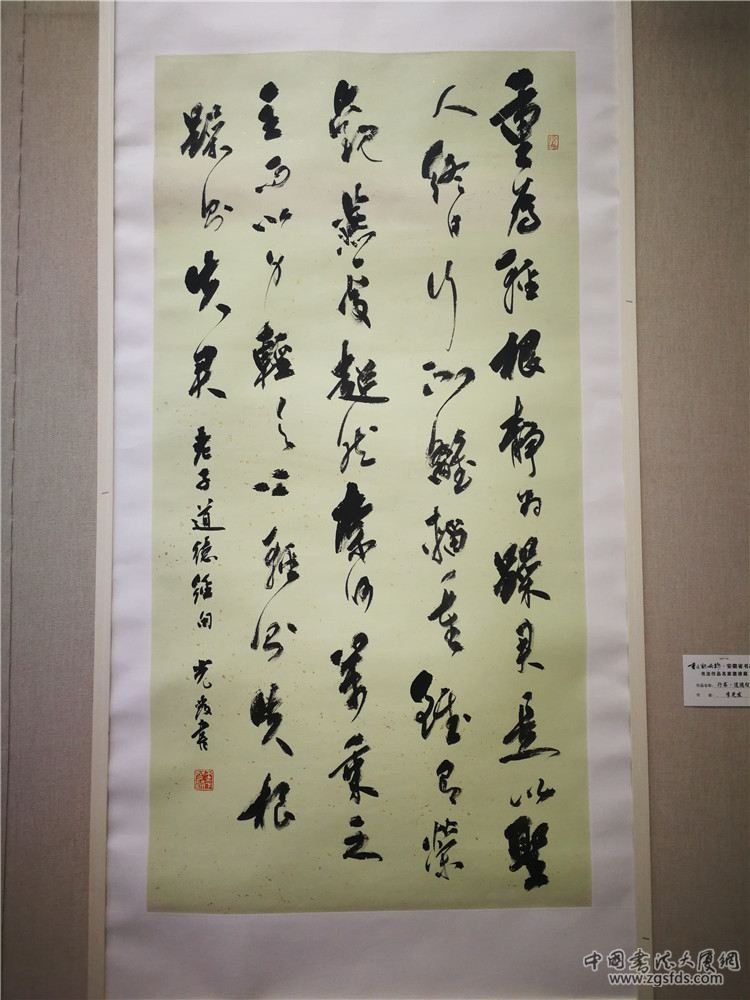 重為輕根靜為躁君是以聖
人終日行不離輜重雖有榮
觀燕處超然奈何萬乘之
主而以身輕天下輕則失根
躁則失君 老子道德經句 光 書
安徽省书
书法作品名家邀请展
作品名称: 行书·道德
作 者:
中国书法大厦网
www.zgsfds.com